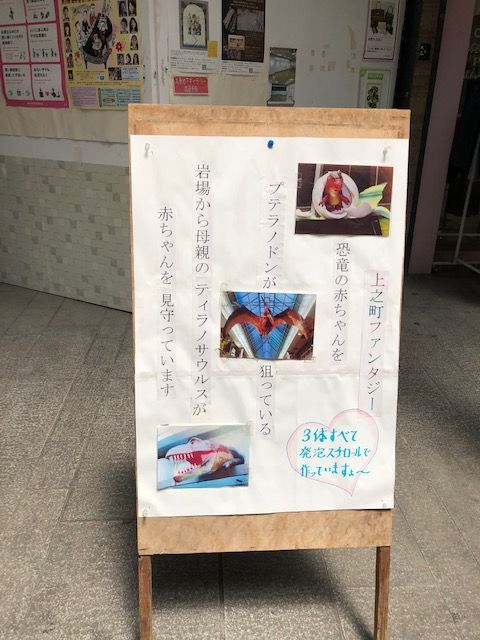 上之町ファンタジー
恐竜の赤ちゃんを
プテラノドンが
狙っている
岩場から母親の ティラノサウルスが
赤ちゃんを 見守っています
3体すべて
発泡スチロールで
作っていますょ〜